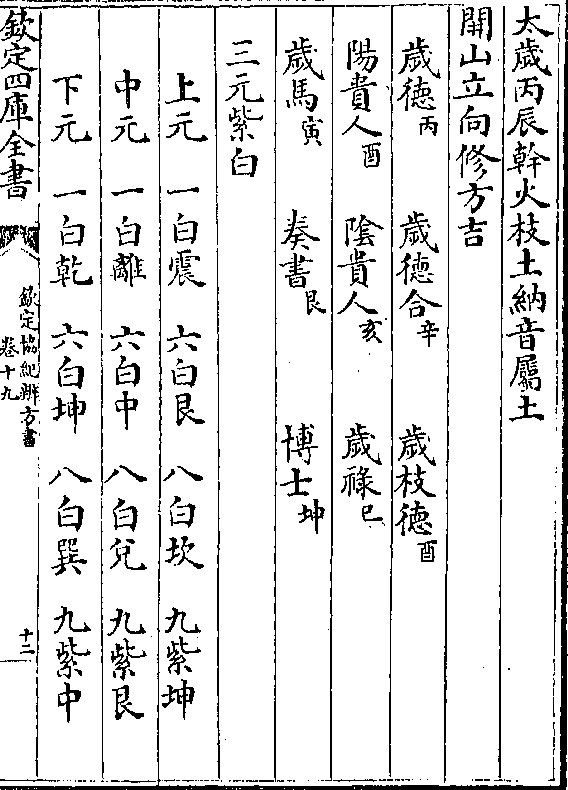 太歲丙辰幹火枝土納音屬土
開山立向修方吉
歲德丙　歲德合辛　歲枝德酉
陽貴人酉　陰貴人亥　歲祿巳
歲馬寅　奏書艮　博士坤
三元紫白
上元　一白震　六白艮　八白坎　九紫坤
中元　一白離　六白中　八白兌　九紫艮
下元　一白乾　六白坤　八白巽　九紫中
欽定四庫全書
欽定協紀辨方書
卷十九
十二